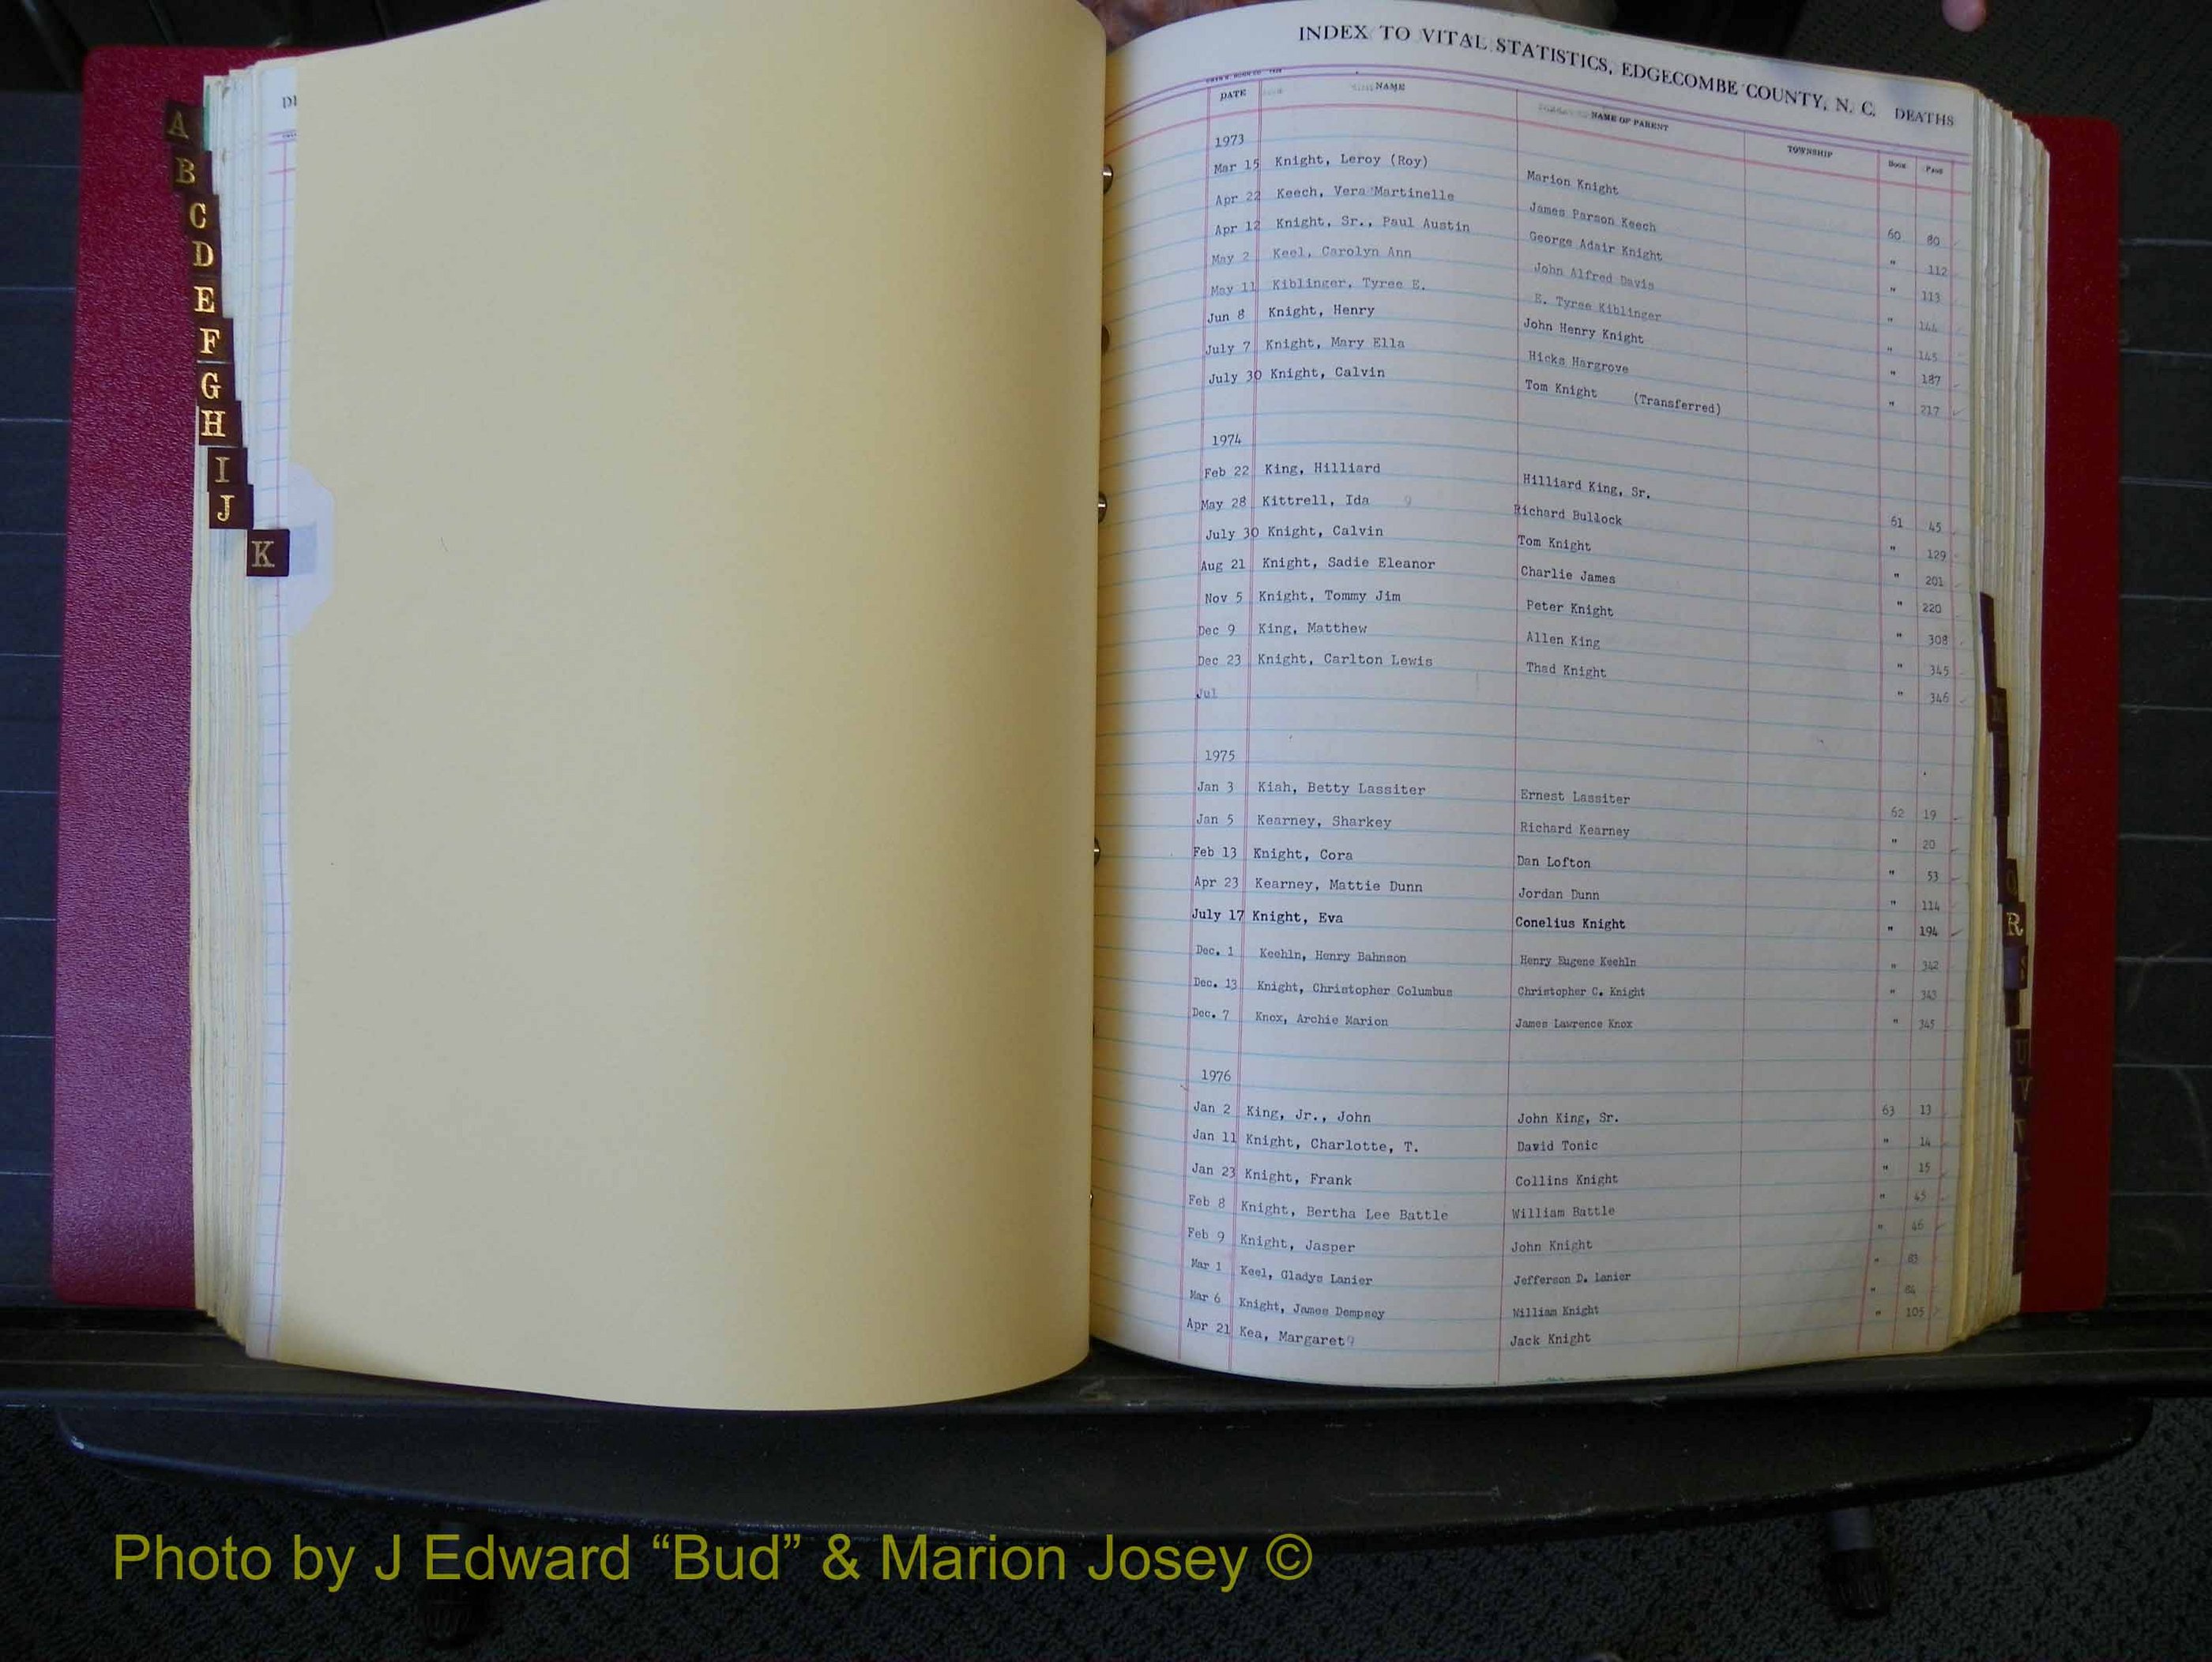 INDEX TO VITAL STATISTICS, EDGECOMBE COUNTY, N. C. DEATHS
DATE NAME NAME OF PARENT TOWNSHIP BOOK PAGE
1973
Mar 15 Knight, Leroy (Roy) Marion Knight 60 80
Apr 22 Keech, Vera Martinelle James Parson Keech " 112
Apr 12 Knight, Sr., Paul Austin George Adair Knight " 113
May 2 Keel, Carolyn Ann John Alfred Davis " 144
May 11 Kiblinger, Tyree E. E. Tyree Kiblinger " 145
Jun 8 Knight, Henry John Henry Knight " 187
July 7 Knight, Mary Ella Hicks Hargrove " 217
July 30 Knight, Calvin Tom Knight (Transferred)
1974
Feb 22 King, Hilliard Hilliard King, Sr. 61 45
May 28 Kittrell, Ida Richard Bullock " 129
July 30 Knight, Calvin Tom Knight " 201
Aug 21 Knight, Sadie Eleanor Charlie James " 220
Nov 5 Knight, Tommy Jim Peter Knight " 308
Dec 9 King, Matthew Allen King " 345
Dec 23 Knight, Carlton Lewis Thad Knight " 346
Jul
1975
Jan 3 Kiah, Betty Lassiter Ernest Lassiter 62 19
Jan 5 Kearney, Sharkey Richard Kearney " 20
Feb 13 Knight, Cora Dan Lofton " 53
Apr 23 Kearney, Mattie Dunn Jordan Dunn " 114
July 17 Knight, Eva Conelius Knight " 194
Dec. 1 Keehln, Henry Bahnson Henry Eugene Keehln " 342
Dec. 13 Knight, Christopher Columbus Christopher C. Knight " 343
Dec. 7 Knox, Archie Marion James Lawrence Knox " 345
1976
Jan 2 King, Jr., John John King, Sr. 63 13
Jan 11 Knight, Charlotte, T. David Tonic " 14
Jan 23 Knight, Frank Collins Knight " 15
Feb 8 Knight, Bertha Lee Battle William Battle " 45
Feb 9 Knight, Jasper John Knight " 46
Mar 1 Keel, Gladys Lanier Jefferson D. Lanier " 83
Mar 6 Knight, James Dempsey William Knight " 84
Apr 21 Kea, Margaret Jack Knight " 105
A
B
C
D
E
F
G
H
I
J
K
R
U
V
Photo by J Edward “Bud” & Marion Josey ©